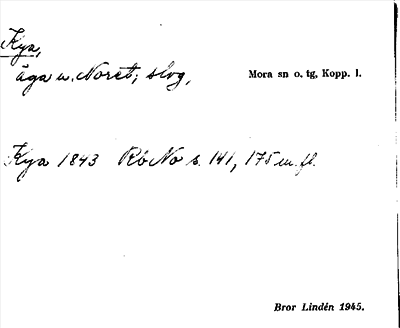 Kya,
äga u. Noret; skog,
Mora sn o. tg, Kopp. l.
Kya 1843 RöNo s. 141, 175 m. fl.
Bror Lindén 1945.